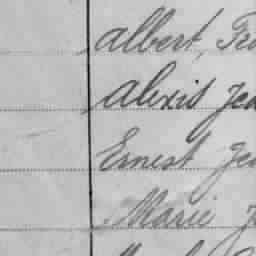 Albert, Fe
Alexis Jea
Ernest Je
Marie J